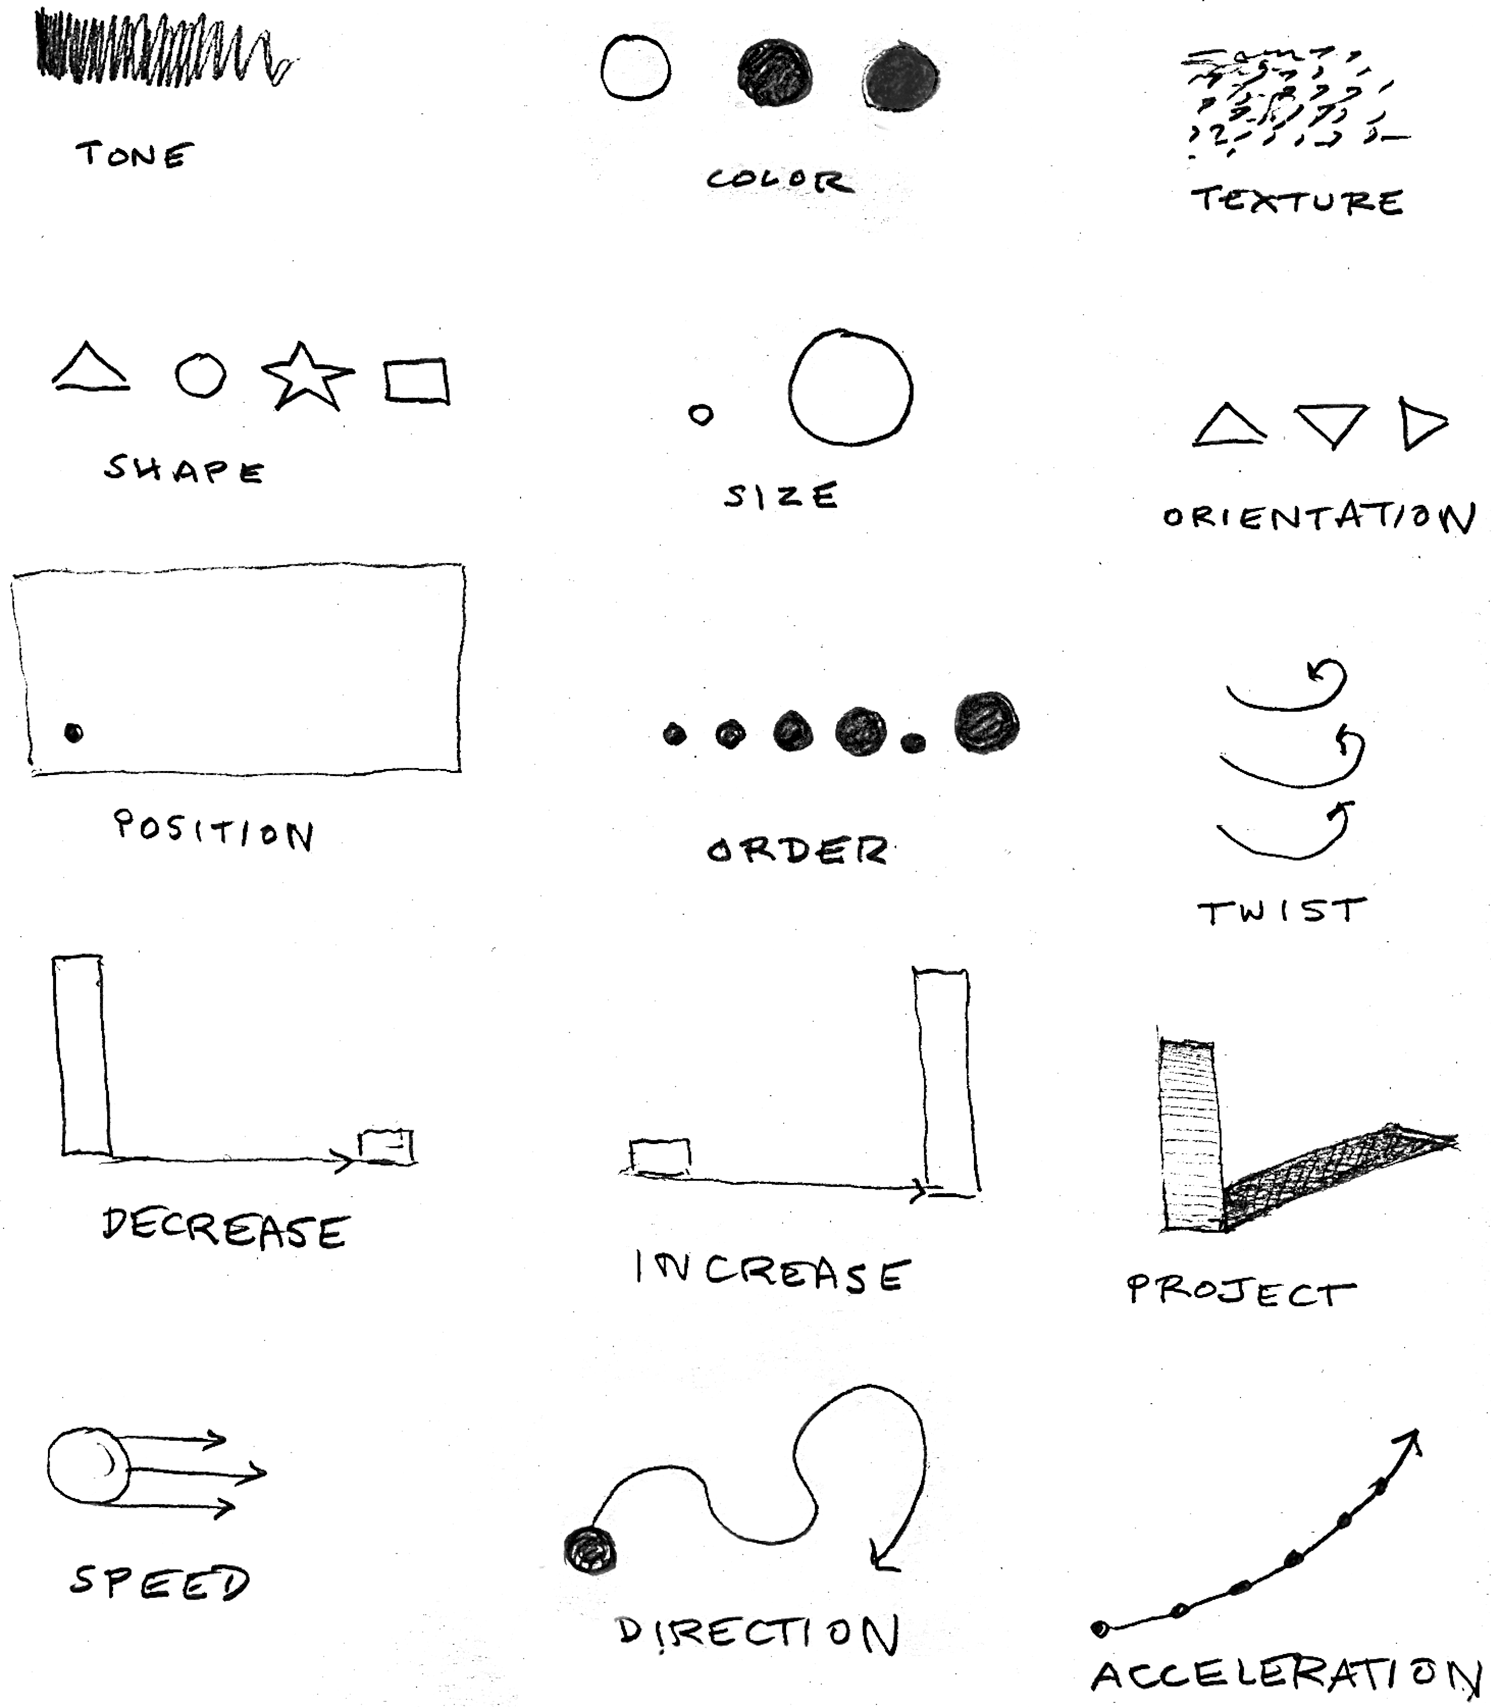 TONE
COLOR
TEXTURE
SHAPE
SIZE
ORIENTATION
POSITION
ORDER
TWIST
DECREASE
INCREASE
PROJECT
SPEED
DIRECTION
ACCELERATION